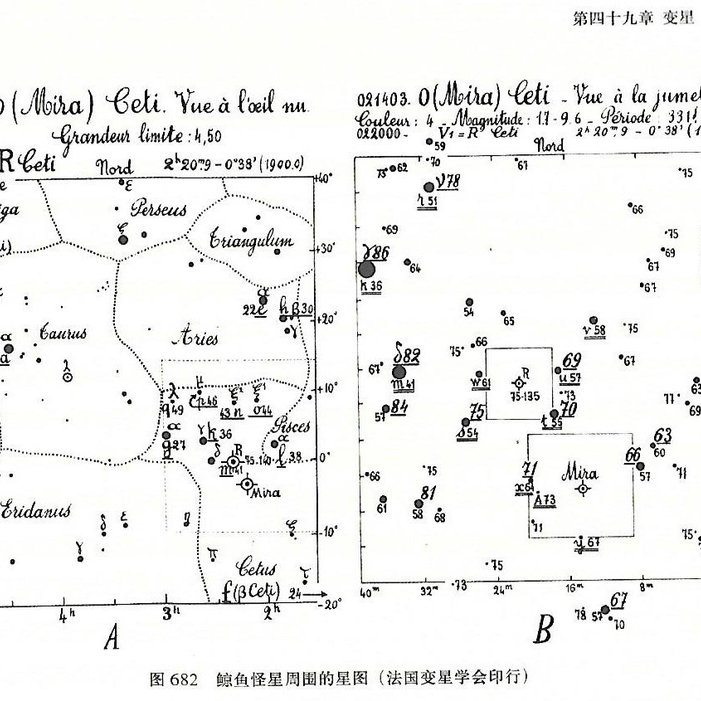 第四十九章 变星
(Mira) Ceti. Vue à l'œil nu.
Grandeur limite : 4,50
R Ceti Nord 2ʰ20ᵐ9 - 0°38' (1900.0)
021403. O(Mira) Ceti - Vue à la jumel
Couleur : 4 - Magnitude : 1.7 - 9.6 - Période : 331
022000 - V₁ = R Ceti 2ʰ20ᵐ9 - 0°38' (1
Nord
+40°
+30°
+20°
+10°
0°
-10°
-20°
Perseus
Triangulum
Taurus
Aries
Pisces
Eridanus
Cetus
f(β Ceti) 24
Mira
R
75.140
m41
22e
h β 30
q49
g27
h 36
43 n
o44
l 38
4ʰ 3ʰ 2ʰ
A
59
70
67
75
73 62
ν78
r 51
66
69
75
69
γ86
h 36
64
67
67
54
65
ν 58
75
75 66
67
67
δ82
m41
w61
R
75-135
69
u 57
63
73
57 84
75
s 54
70
t 55
77
69
63
60
66
57
71
66
75
71
x64
Mira
A73
61
81
58
68
71
y 67
75
75
73
40ᵐ 32ᵐ 24ᵐ 16ᵐ 8ᵐ
67
78 57
70
B
图 682 鲸鱼怪星周围的星图（法国变星学会印行）